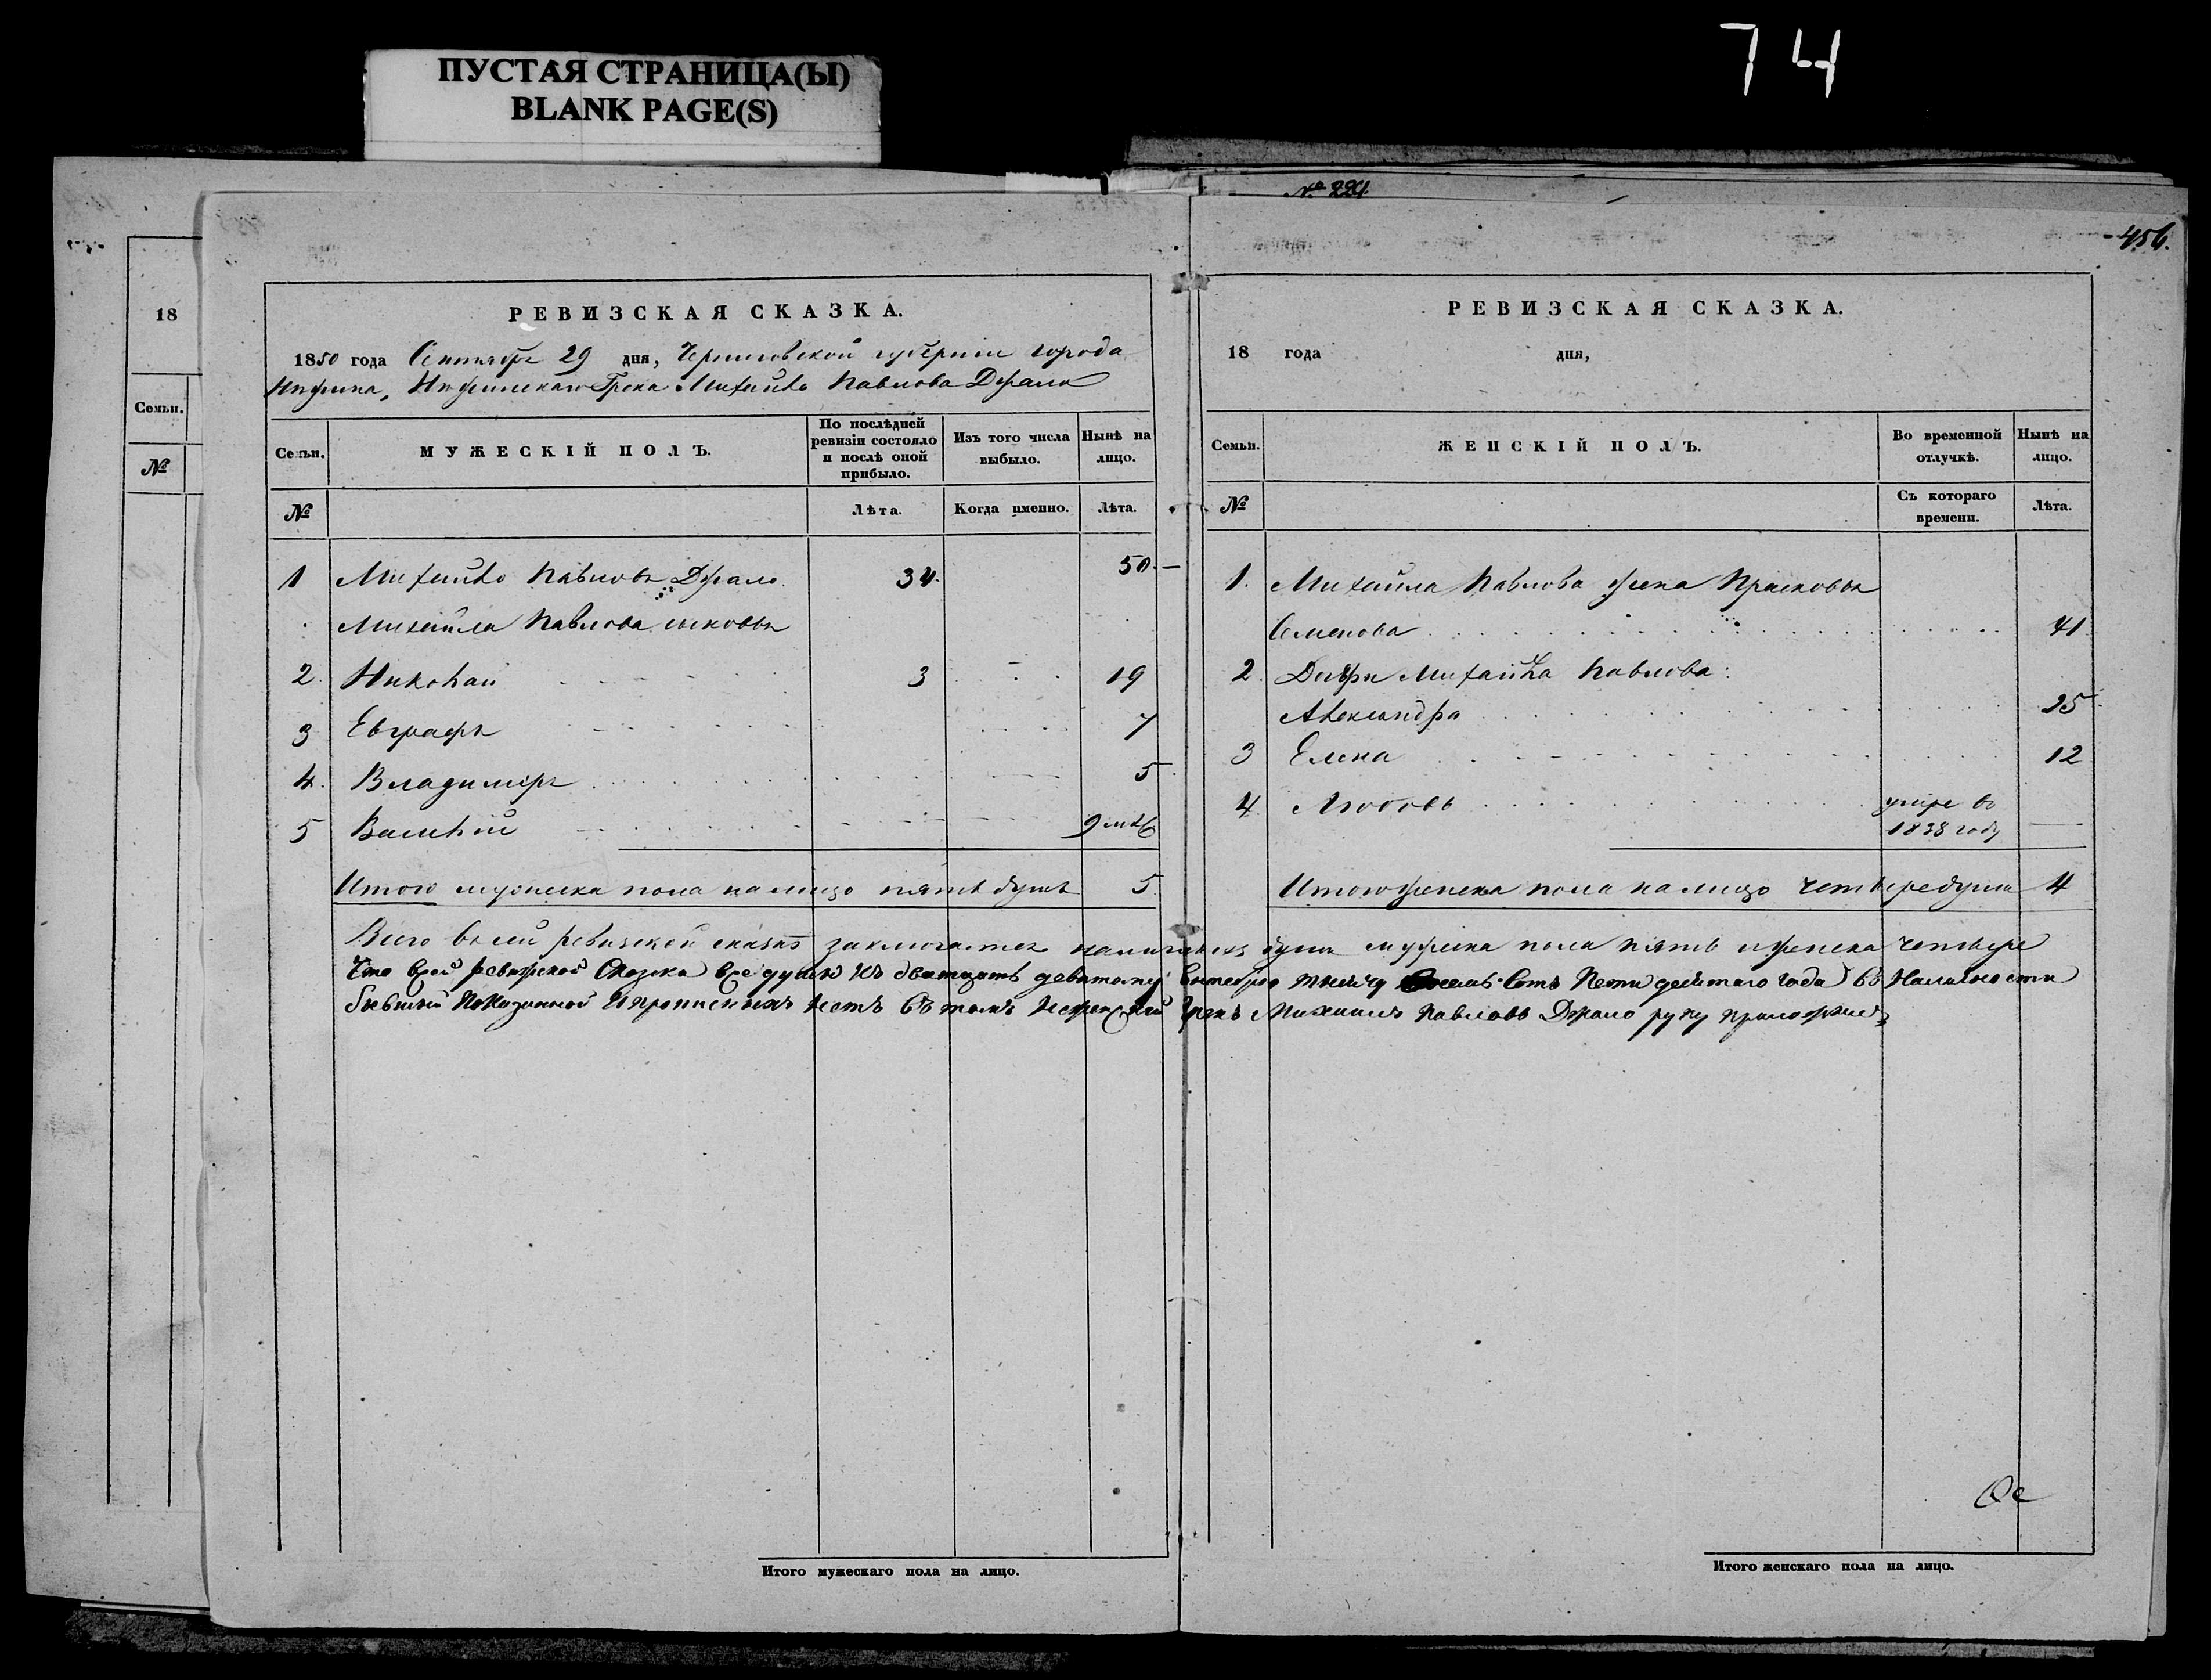 ПУСТАЯ СТРАНИЦА(Ы)
BLANK PAGE(S)
74
№ 221.
456.
18
Семьи.
№
РЕВИЗСКАЯ СКАЗКА.
1850 года Сентября 29 дня, Черниговской губернии города
Нѣжина, Нѣжинскаго Грека Михайла Павлова Джало
Семьи.
МУЖЕСКІЙ ПОЛЪ.
По послѣдней ревизіи состояло и послѣ оной прибыло.
Изъ того числа выбыло.
Нынѣ на лицо.
№
Лѣта.
Когда именно.
Лѣта.
1 Михайло Павловъ Джало 34. 50.
Михайла Павлова сыновья
2. Николай 3 19
3 Евграфъ 7
4. Владимиръ 5
5 Василий 9 мѣс
Итого мужеска пола на лицо пять душъ 5
РЕВИЗСКАЯ СКАЗКА.
18 года дня,
Семьи.
ЖЕНСКІЙ ПОЛЪ.
Во временной отлучкѣ.
Нынѣ на лицо.
№
Съ котораго времени.
Лѣта.
1. Михайла Павлова жена Прасковья
Семенова 41
2. Дочери Михайла Павлова:
Александра 25
3 Елена 12
4. Любовь умре въ
1838 году
Итого женска пола на лицо четыре души 4
Всего в сей ревизской сказкѣ заключается наличныхъ душъ мужеска пола пять и женска четыре
Что всей ревизской Сказка все души къ дватцать девятому Сентебря Восемь Сотъ Пети десятаго года въ Наличности
бывший Показанной И прописныхъ нетъ Въ томъ Грекъ Михаилъ Павловъ Джало руку приложилъ
Итого мужескаго пола на лицо.
Итого женскаго пола на лицо.